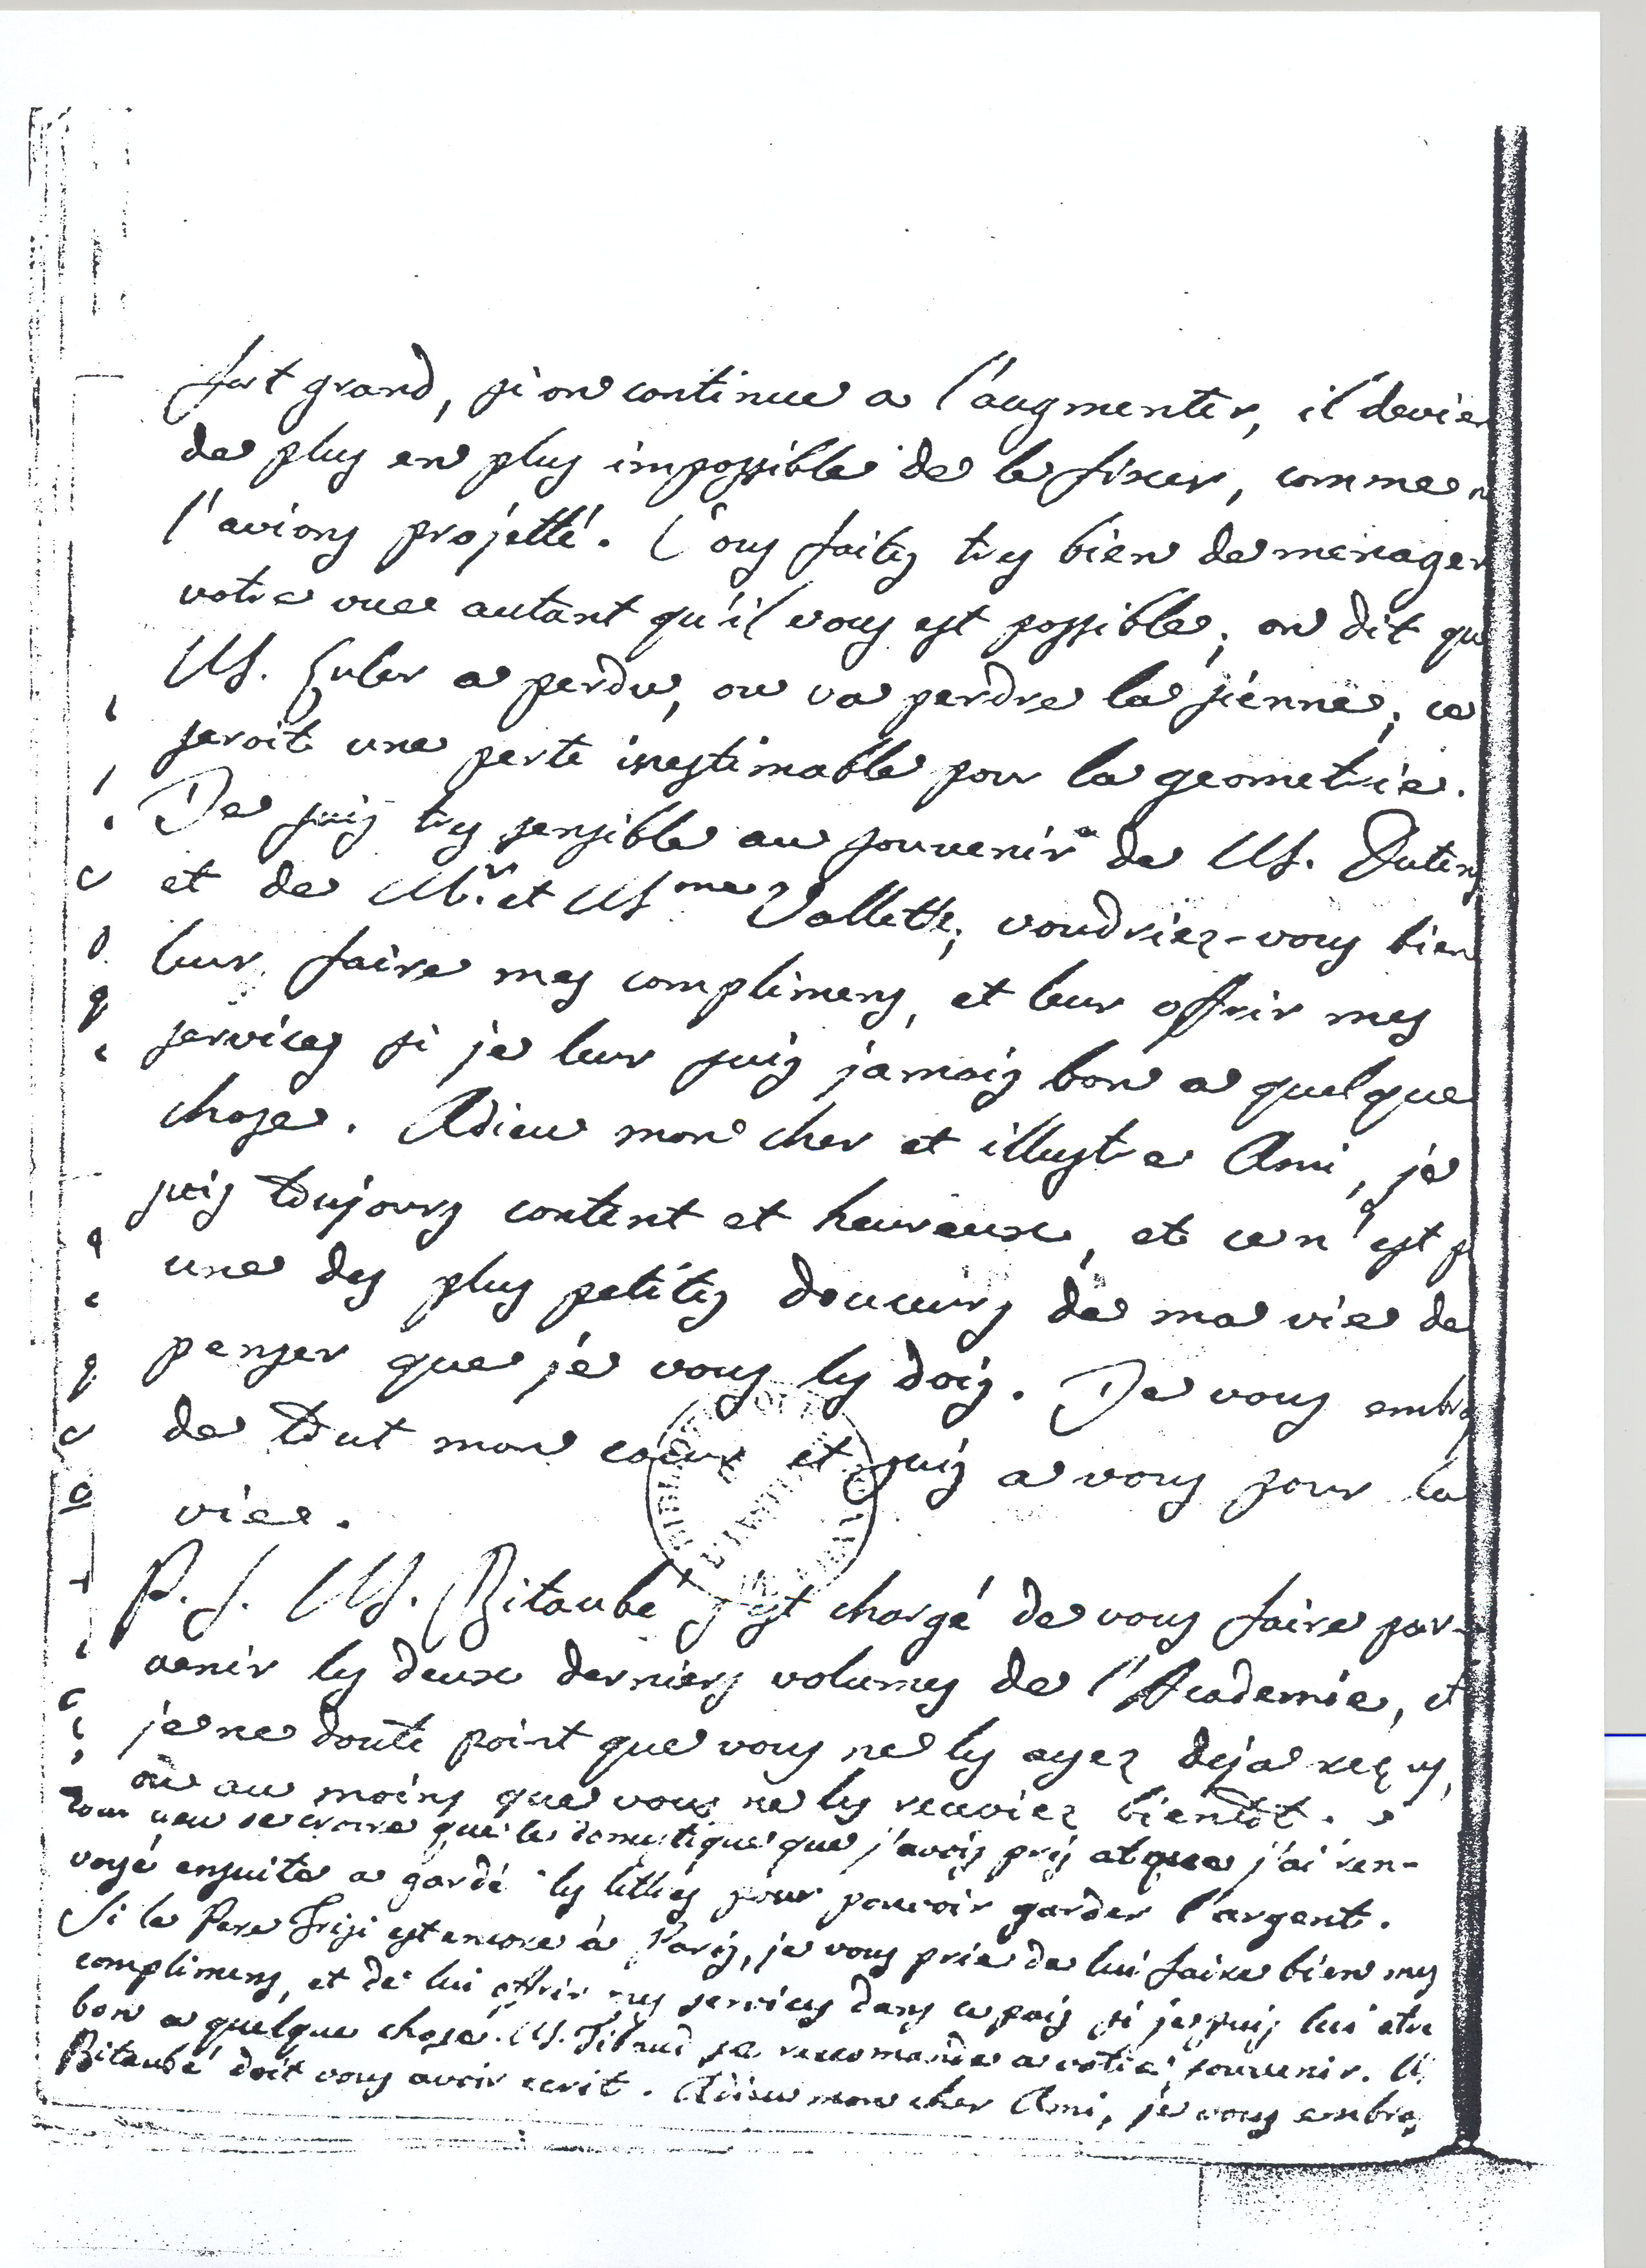 fort grand, si on continue a l'augmenter, il devien
de plus en plus impossible de le fixer, comme n
l'avions projetté. Vous faites tres bien de menager
votre vue autant qu'il vous est possible; on dit qu
M. Euler a perdu, ou va perdre la sienne; ce
seroit une perte inestimable pour la geometrie.
Je suis tres sensible au souvenir de M. Dutens
et de Mr. et Mme Vallette; voudriez-vous bien
leur faire mes complimens, et leur offrir mes
services si je leur suis jamais bon a quelque
chose. Adieu mon cher et illustre Ami, je
suis toujours content et heureux, et ce n'est p
une des plus petites douceurs de ma vie de
penser que je vous les dois. Je vous embra
de tout mon coeur et suis a vous pour la
vie.
P. S. M. Bitaubé s'est chargé de vous faire par-
venir les deux derniers volumes de l'Academie, et
je ne doute point que vous ne les ayez deja reçus,
ou au moins que vous ne les receviez bientôt.
lieu de croire que le domestique que j'avois pris et que j'ai ren-
voyé ensuite a gardé les lettres pour pouvoir garder l'argent.
Si le Pere Frisi est encore à Paris, je vous prie de lui faire bien mes
complimens, et de lui offrir mes services dans ce pais si je puis lui etre
bon a quelque chose. M. se recomande a votre souvenir. M
Bitaubé doit vous avoir ecrit. Adieu mon cher Ami, je vous embras